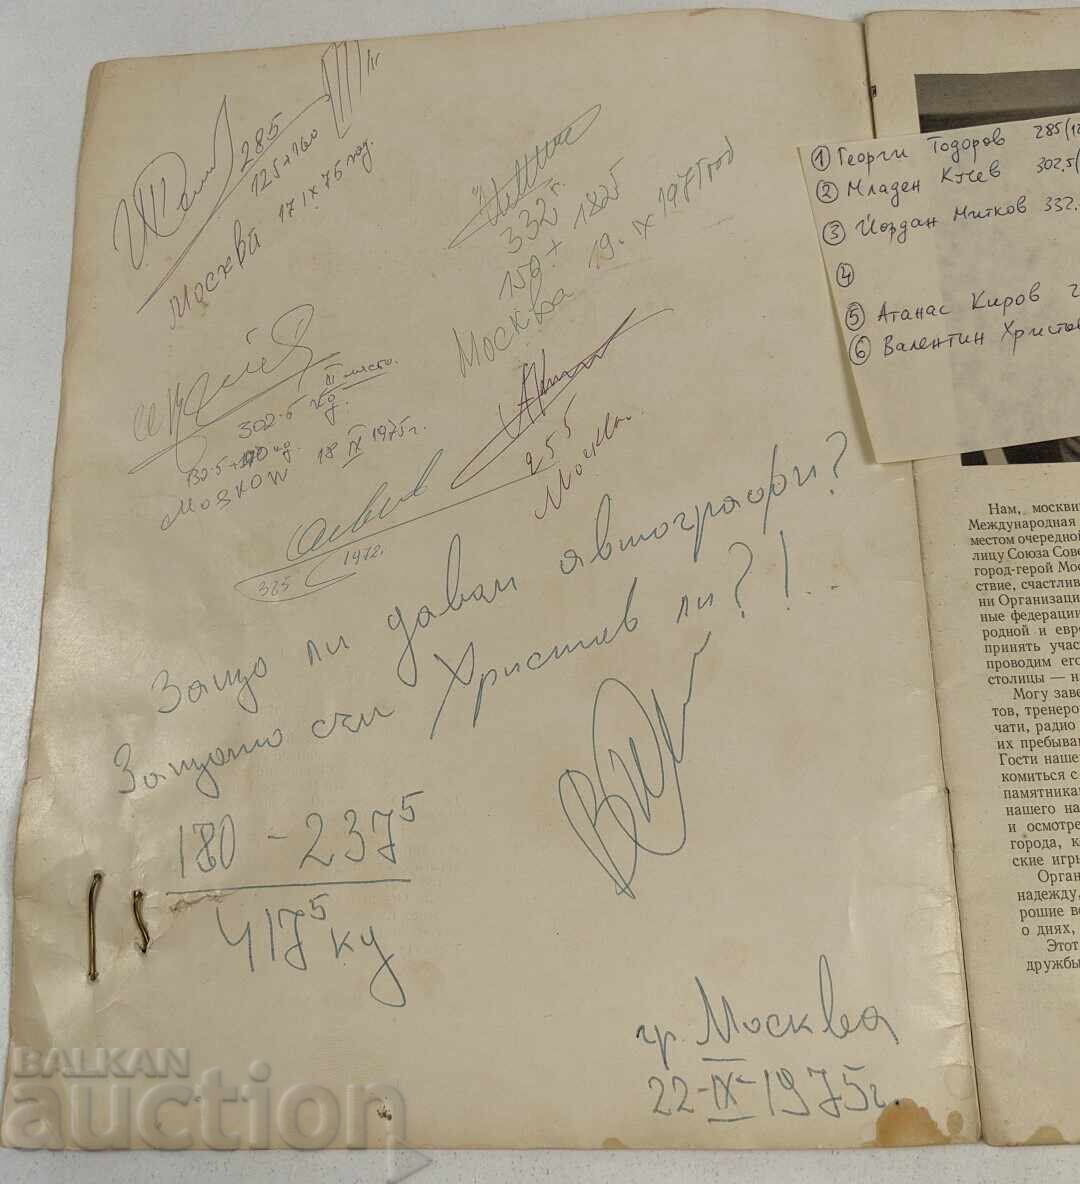 285
125+160
Москва
17 IX 75 год.
332⁵ г.
150 + 182⁵
Москва 19. IX 1975 год
302.5 кг
III място.
130.5+170 кг.
MOSKOW 18 IX 1975 г.
255
Москва.
325
1972.
Защо ли давам автографи?
Защото съм Христов ли?!..
180 - 237⁵
417⁵ кг
гр. Москва
22-IX-1975 г.
① Георги Тодоров 285(12
② Младен Кучев 302,5(
③ Йордан Митков 332,
④
⑤ Атанас Киров 2
⑥ Валентин Христов
Нам, москви
Международная
местом очередной
лицу Союза Сове
город-герой Мос
ствие, счастлив
ни Организаци
ные федерации
родной и евр
принять учас
проводим его
столицы — на
Могу заве
тов, тренеро
чати, радио
их пребыван
Гости наше
комиться с
памятника
нашего на
и осмотре
города, к
ские игры
Орган
надежду,
рошие во
о днях,
Этот
дружбы
BALKAN
auction